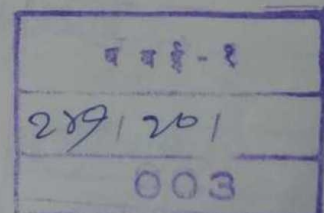 बबई-१
२४९/२०१
003